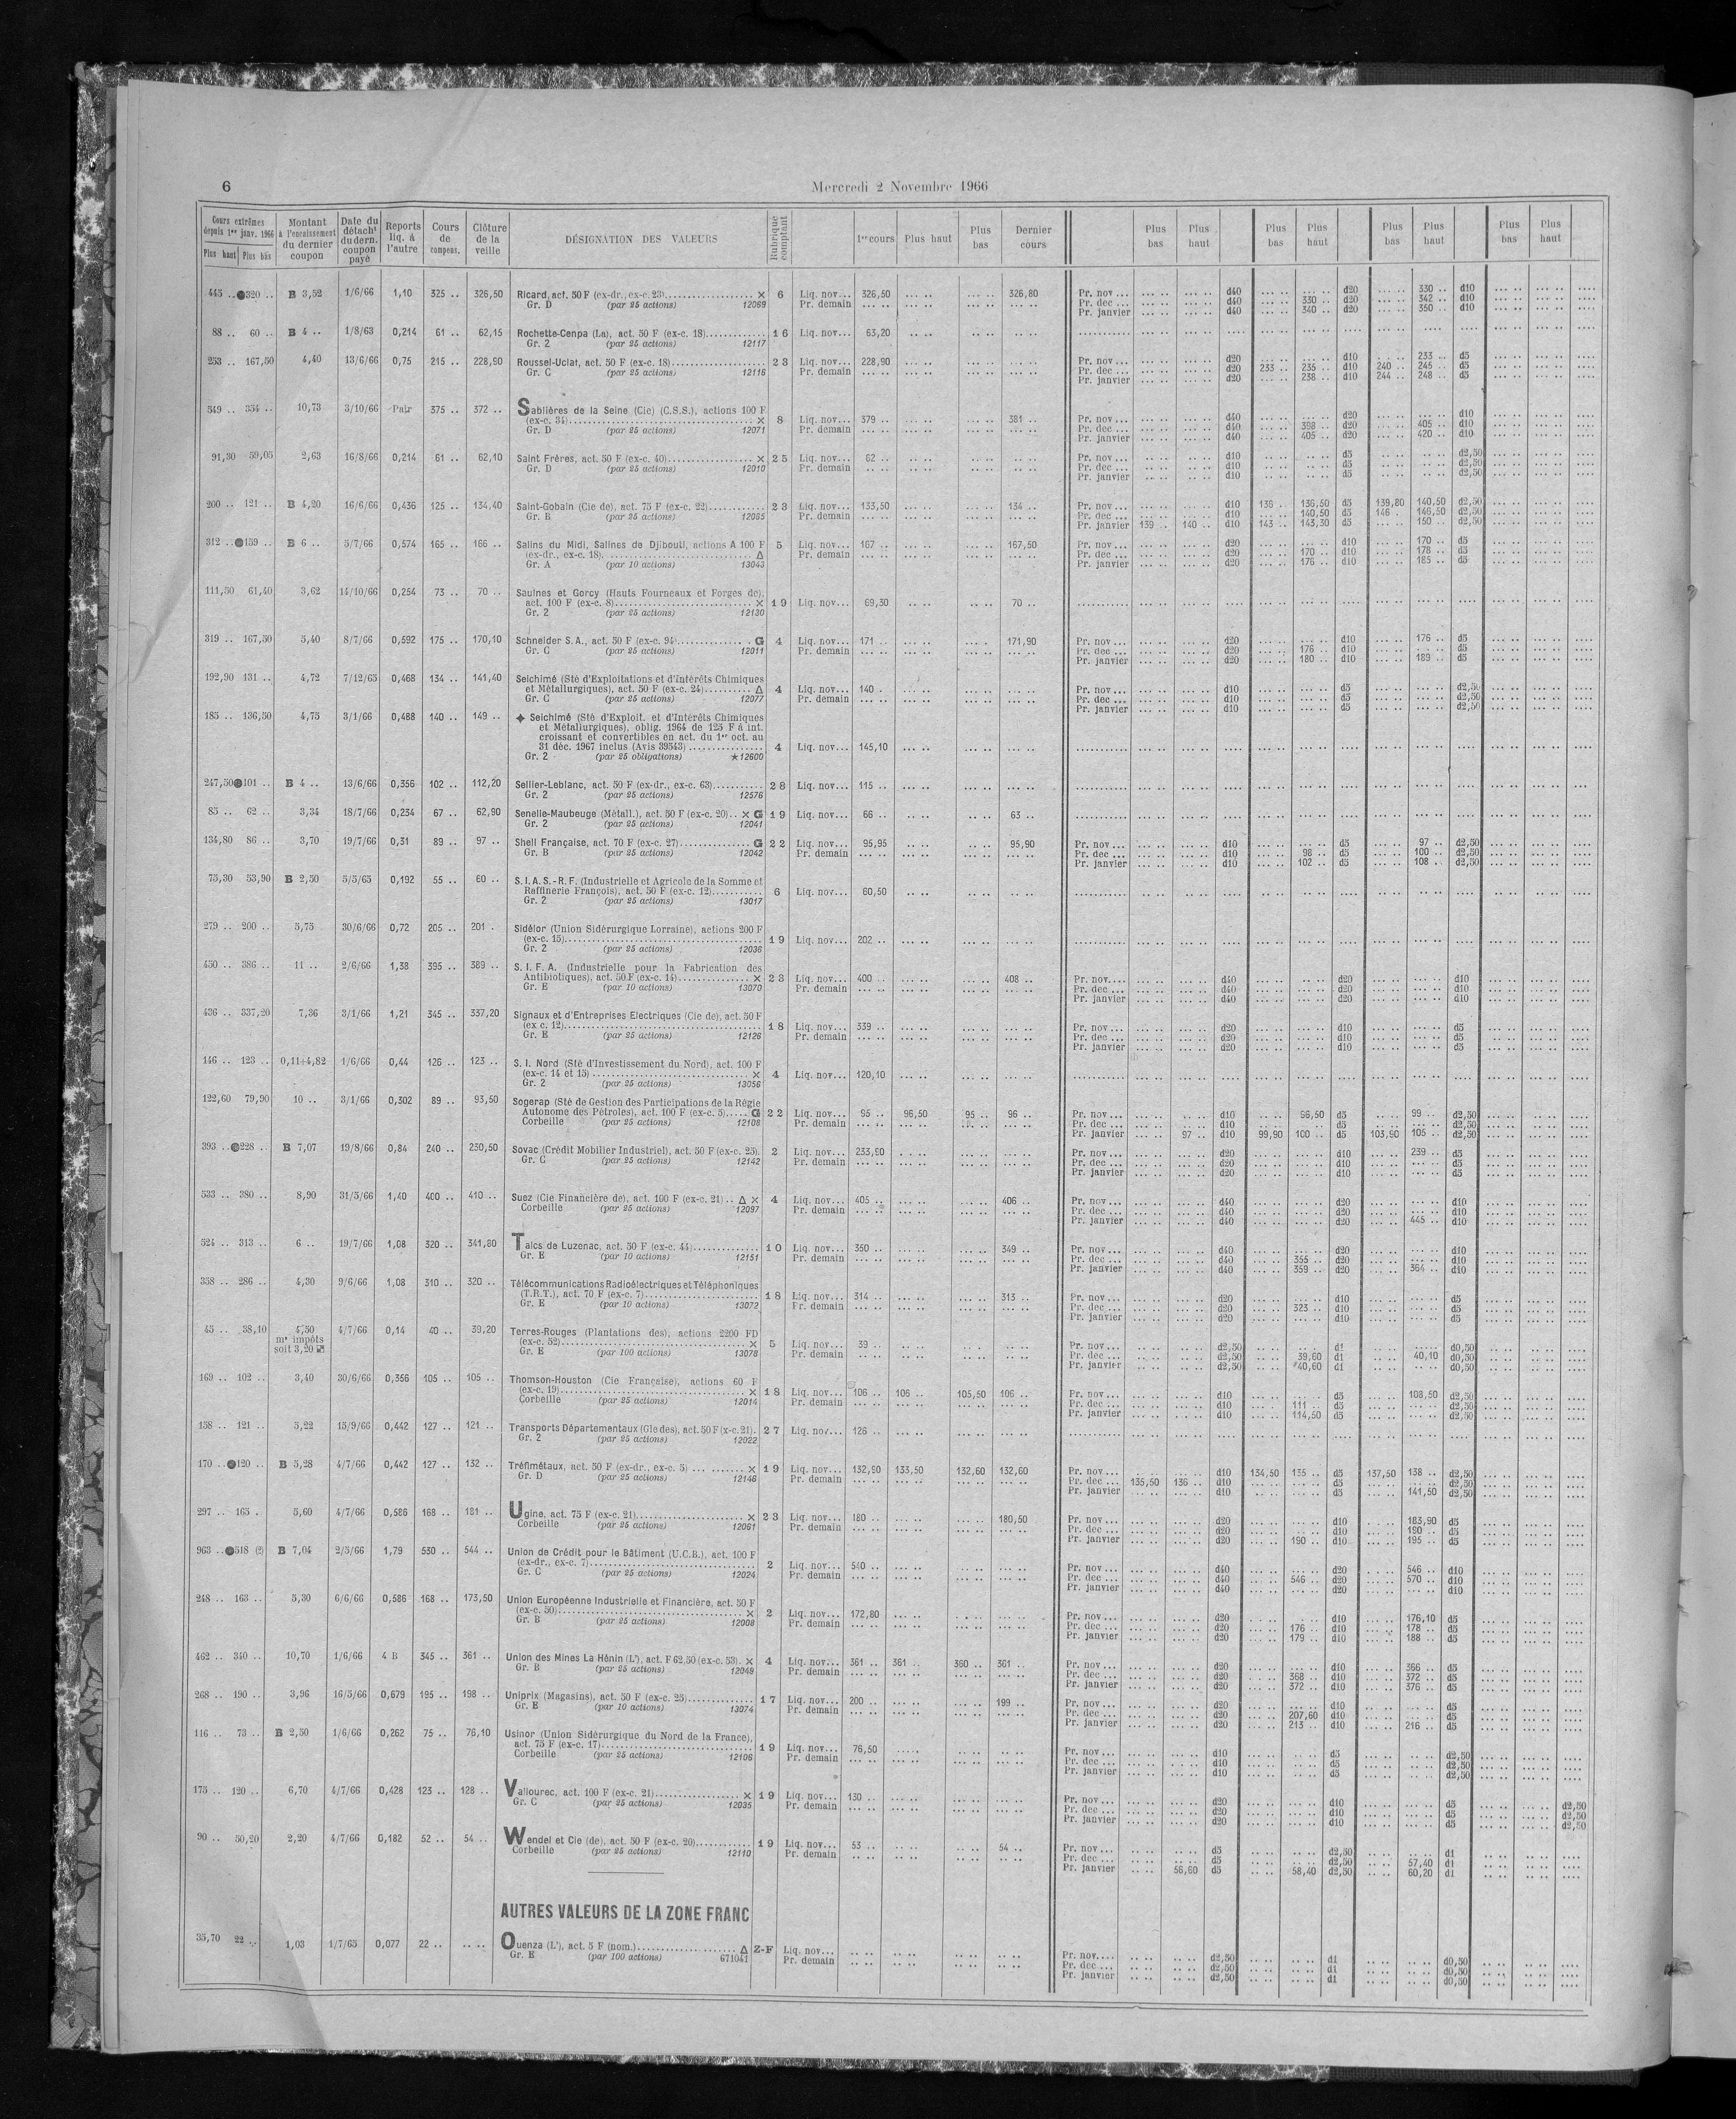 6
Mercredi 2 Novembre 1966
Cours extrêmes depuis 1er janv. 1966 Plus haut Plus bas Montant à l'encaissement du dernier coupon Date du détacht du dern. coupon payé Reports liq. à l'autre Cours de compens. Clôture de la veille DÉSIGNATION DES VALEURS Rubrique comptant 1er cours Plus haut Plus bas Dernier cours Plus bas Plus haut Plus bas Plus haut Plus bas Plus haut Plus bas Plus haut
445 .. 320 .. B 3,52 1/6/66 1,10 325 .. 326,50 Ricard, act. 50 F (ex-dr., ex-c. 23) × 6 Liq. nov... 326,50 326,80 Pr. nov ... d40 d20 330 .. d10
Gr. D (par 25 actions) 12069 Pr. demain Pr. dec ... d40 330 .. d20 342 .. d10
Pr. janvier d40 340 .. d20 350 .. d10
88 .. 60 .. B 4 .. 1/8/63 0,214 61 .. 62,15 Rochette-Cenpa (La), act. 50 F (ex-c. 18) 16 Liq. nov... 63,20
Gr. 2 (par 25 actions) 12117
253 .. 167,50 4,40 13/6/66 0,75 215 .. 228,90 Roussel-Uclaf, act. 50 F (ex-c. 18) 23 Liq. nov... 228,90 Pr. nov ... d20 d10 233 .. d5
Gr. C (par 25 actions) 12116 Pr. demain Pr. dec ... d20 233 .. 235 .. d10 240 .. 245 .. d5
Pr. janvier d20 238 .. d10 244 .. 248 .. d5
549 .. 354 .. 10,73 3/10/66 Pair 375 .. 372 .. Sablières de la Seine (Cie) (C.S.S.), actions 100 F
(ex-c. 34) × 8 Liq. nov... 379 .. 381 .. Pr. nov ... d40 d20 d10
Gr. D (par 25 actions) 12071 Pr. demain Pr. dec ... d40 398 .. d20 405 .. d10
Pr. janvier d40 405 .. d20 420 .. d10
91,30 59,05 2,63 16/8/66 0,214 61 .. 62,10 Saint Frères, act. 50 F (ex-c. 40) × 25 Liq. nov... 62 .. Pr. nov ... d10 d5 d2,50
Gr. D (par 25 actions) 12010 Pr. demain Pr. dec ... d10 d5 d2,50
Pr. janvier d10 d5 d2,50
200 .. 121 .. B 4,20 16/6/66 0,436 125 .. 134,40 Saint-Gobain (Cie de), act. 75 F (ex-c. 22) 23 Liq. nov... 133,50 134 .. Pr. nov ... d10 136 .. 136,50 d5 139,80 140,50 d2,50
Gr. B (par 25 actions) 12085 Pr. demain Pr. dec ... d10 140,50 d5 146 .. 146,50 d2,50
Pr. janvier 139 .. 140 .. d10 143 .. 143,30 d5 150 .. d2,50
312 .. 159 .. B 6 .. 5/7/66 0,574 165 .. 166 .. Salins du Midi, Salines de Djibouti, actions A 100 F 5 Liq. nov... 167 .. 167,50 Pr. nov ... d20 d10 170 .. d5
(ex-dr., ex-c. 18) Δ Pr. demain Pr. dec ... d20 170 .. d10 178 .. d5
Gr. A (par 10 actions) 13043 Pr. janvier d20 176 .. d10 185 .. d5
111,50 61,40 3,62 14/10/66 0,254 73 .. 70 .. Saulnes et Gorcy (Hauts Fourneaux et Forges de),
act. 100 F (ex-c. 8) × 19 Liq. nov... 69,30 70 ..
Gr. 2 (par 25 actions) 12130
319 .. 167,50 5,40 8/7/66 0,592 175 .. 170,10 Schneider S.A., act. 50 F (ex-c. 94) G 4 Liq. nov... 171 .. 171,90 Pr. nov ... d20 d10 176 .. d5
Gr. C (par 25 actions) 12011 Pr. demain Pr. dec ... d20 176 .. d10 d5
Pr. janvier d20 180 .. d10 189 .. d5
192,90 131 .. 4,72 7/12/65 0,468 134 .. 141,40 Seichimé (Sté d'Exploitations et d'Intérêts Chimiques
et Métallurgiques), act. 50 F (ex-c. 24) Δ 4 Liq. nov... 140 . Pr. nov ... d10 d5 d2,50
Gr. C (par 25 actions) 12077 Pr. dec ... d10 d5 d2,50
Pr. janvier d10 d5 d2,50
185 .. 136,50 4,75 3/1/66 0,488 140 .. 149 .. ✦ Seichimé (Sté d'Exploit. et d'Intérêts Chimiques
et Métallurgiques), oblig. 1964 de 125 F à int.
croissant et convertibles en act. du 1er oct. au
31 déc. 1967 inclus (Avis 39543) 4 Liq. nov... 145,10
Gr. 2 (par 25 obligations) ★12600
247,50 101 .. B 4 .. 13/6/66 0,356 102 .. 112,20 Sellier-Leblanc, act. 50 F (ex-dr., ex-c. 63) 28 Liq. nov... 115 ..
Gr. 2 (par 25 actions) 12576
85 .. 62 .. 3,34 18/7/66 0,234 67 .. 62,90 Senelle-Maubeuge (Métall.), act. 50 F (ex-c. 20) .. × G 19 Liq. nov... 66 .. 63 ..
Gr. 2 (par 25 actions) 12041
134,80 86 .. 3,70 19/7/66 0,31 89 .. 97 .. Shell Française, act. 70 F (ex-c. 27) G 22 Liq. nov... 95,95 95,90 Pr. nov ... d10 d5 97 .. d2,50
Gr. B (par 25 actions) 12042 Pr. demain Pr. dec ... d10 98 .. d5 100 .. d2,50
Pr. janvier d10 102 .. d5 108 .. d2,50
75,30 53,90 B 2,50 5/5/65 0,192 55 .. 60 .. S.I.A.S.-R.F. (Industrielle et Agricole de la Somme et
Raffinerie François), act. 50 F (ex-c. 12) 6 Liq. nov... 60,50
Gr. 2 (par 25 actions) 13017
279 .. 200 .. 5,75 30/6/66 0,72 205 .. 201 . Sidélor (Union Sidérurgique Lorraine), actions 200 F
(ex-c. 15) 19 Liq. nov... 202 ..
Gr. 2 (par 25 actions) 12036
450 .. 386 .. 11 .. 2/6/66 1,38 395 .. 389 .. S. I. F. A. (Industrielle pour la Fabrication des
Antibiotiques), act. 50 F (ex-c. 14) × 23 Liq. nov... 400 .. 408 .. Pr. nov... d40 d20 d10
Gr. E (par 10 actions) 13070 Pr. demain Pr. dec ... d40 d20 d10
Pr. janvier d40 d20 d10
436 .. 337,20 7,36 3/1/66 1,21 345 .. 337,20 Signaux et d'Entreprises Electriques (Cie de), act. 50 F
(ex c. 12) 18 Liq. nov... 339 .. Pr. nov ... d20 d10 d5
Gr. E (par 25 actions) 12126 Pr. demain Pr. dec ... d20 d10 d5
Pr. janvier d20 d10 d5
146 .. 123 .. 0,11+4,82 1/6/66 0,44 126 .. 123 .. S. I. Nord (Sté d'Investissement du Nord), act. 100 F
(ex-c. 14 et 15) × 4 Liq. nov... 120,10
Gr. 2 (par 25 actions) 13056
122,60 79,90 10 .. 3/1/66 0,302 89 .. 93,50 Sogerap (Sté de Gestion des Participations de la Régie
Autonome des Pétroles), act. 100 F (ex-c. 5) G 22 Liq. nov... 95 .. 96,50 95 .. 96 .. Pr. nov ... d10 96,50 d5 99 .. d2,50
Corbeille (par 25 actions) 12108 Pr. demain Pr. dec ... d10 d5 d2,50
Pr. janvier 97 .. d10 99,90 100 .. d5 103,90 105 .. d2,50
393 .. 228 .. B 7,07 19/8/66 0,84 240 .. 230,50 Sovac (Crédit Mobilier Industriel), act. 50 F (ex-c. 25). 2 Liq. nov... 233,90 Pr. nov ... d20 d10 239 .. d5
Gr. C (par 25 actions) 12142 Pr. demain Pr. dec ... d20 d10 d5
Pr. janvier d20 d10 d5
533 .. 380 .. 8,90 31/5/66 1,40 400 .. 410 .. Suez (Cie Financière de), act. 100 F (ex-c. 21) .. Δ × 4 Liq. nov... 405 .. 406 .. Pr. nov ... d40 d20 d10
Corbeille (par 25 actions) 12097 Pr. demain Pr. dec ... d40 d20 d10
Pr. janvier d40 d20 445 .. d10
524 .. 313 .. 6 .. 19/7/66 1,08 320 .. 341,80 Talcs de Luzenac, act. 50 F (ex-c. 44) 10 Liq. nov... 350 .. 349 .. Pr. nov... d40 d20 d10
Gr. E (par 10 actions) 12151 Pr. demain Pr. dec ... d40 355 .. d20 d10
Pr. janvier d40 359 .. d20 364 .. d10
358 .. 286 .. 4,30 9/6/66 1,08 310 .. 320 .. Télécommunications Radioélectriques et Téléphoniques
(T.R.T.), act. 70 F (ex-c. 7) 18 Liq. nov... 314 .. 313 .. Pr. nov ... d20 d10 d5
Gr. E (par 10 actions) 13072 Pr. demain Pr. dec ... d20 323 .. d10 d5
Pr. janvier d20 d10 d5
45 .. 38,10 4,50 4/7/66 0,14 40 .. 39,20 Terres-Rouges (Plantations des), actions 2200 FD
ms impôts (ex-c. 52) × 5 Liq. nov... 39 .. Pr. nov ... d2,50 d1 d0,50
soit 3,20 Gr. E (par 100 actions) 13078 Pr. demain Pr. dec ... d2,50 39,60 d1 40,10 d0,50
Pr. janvier d2,50 40,60 d1 d0,50
169 .. 102 .. 3,40 30/6/66 0,356 105 .. 105 .. Thomson-Houston (Cie Française), actions 60 F
(ex-c. 19) × 18 Liq. nov... 106 .. 106 .. 105,50 106 .. Pr. nov ... d10 d5 108,50 d2,50
Corbeille (par 25 actions) 12014 Pr. demain Pr. dec ... d10 111 .. d5 d2,50
Pr. janvier d10 114,50 d5 d2,50
158 .. 121 .. 5,22 15/9/66 0,442 127 .. 121 .. Transports Départementaux (Gle des), act. 50 F (x-c. 21). 27 Liq. nov... 126 ..
Gr. 2 (par 25 actions) 12022
170 .. 120 .. B 5,28 4/7/66 0,442 127 .. 132 .. Tréfimétaux, act. 50 F (ex-dr., ex-c. 5) × 19 Liq. nov... 132,90 133,50 132,60 132,60 Pr. nov ... d10 134,50 135 .. d5 137,50 138 .. d2,50
Gr. D (par 25 actions) 12146 Pr. demain Pr. dec ... 135,50 136 .. d10 d5 d2,50
Pr. janvier d10 d5 141,50 d2,50
297 .. 165 . 5,60 4/7/66 0,586 168 .. 181 .. Ugine, act. 75 F (ex-c. 21) × 23 Liq. nov... 180 .. 180,50 Pr. nov ... d20 d10 183,90 d5
Corbeille (par 25 actions) 12061 Pr. demain Pr. dec ... d20 d10 190 .. d5
Pr. janvier d20 190 .. d10 195 .. d5
963 .. 518 (2) B 7,04 2/5/66 1,79 530 .. 544 .. Union de Crédit pour le Bâtiment (U.C.B.), act. 100 F
(ex-dr., ex-c. 7) 2 Liq. nov... 540 .. Pr. nov ... d40 d20 546 .. d10
Gr. C (par 25 actions) 12024 Pr. demain Pr. dec ... d40 546 .. d20 570 .. d10
Pr. janvier d40 d20 d10
248 .. 163 .. 5,30 6/6/66 0,586 168 .. 173,50 Union Européenne Industrielle et Financière, act. 50 F
(ex-c. 50) × 2 Liq. nov... 172,80 Pr. nov ... d20 d10 176,10 d5
Gr. B (par 25 actions) 12008 Pr. demain Pr. dec ... d20 176 .. d10 178 .. d5
Pr. janvier d20 179 .. d10 188 .. d5
462 .. 340 .. 10,70 1/6/66 4 B 345 .. 361 .. Union des Mines La Hénin (L'), act. F 62,50 (ex-c. 53). × 4 Liq. nov... 361 .. 361 .. 360 .. 361 .. Pr. nov ... d20 d10 366 .. d5
Gr. B (par 25 actions) 12049 Pr. demain Pr. dec ... d20 368 .. d10 372 .. d5
Pr. janvier d20 372 .. d10 376 .. d5
268 .. 190 .. 3,96 16/5/66 0,679 195 .. 198 .. Uniprix (Magasins), act. 50 F (ex-c. 25) 17 Liq. nov... 200 .. 199 .. Pr. nov ... d20 d10 d5
Gr. E (par 10 actions) 13074 Pr. demain Pr. dec ... d20 207,60 d10 d5
Pr. janvier d20 213 .. d10 216 .. d5
116 .. 73 .. B 2,50 1/6/66 0,262 75 .. 76,10 Usinor (Union Sidérurgique du Nord de la France),
act. 75 F (ex-c. 17) 19 Liq. nov... 76,50 Pr. nov ... d10 d5 d2,50
Corbeille (par 25 actions) 12106 Pr. demain Pr. dec ... d10 d5 d2,50
Pr. janvier d10 d5 d2,50
175 .. 120 .. 6,70 4/7/66 0,428 123 .. 128 .. Vallourec, act. 100 F (ex-c. 21) × 19 Liq. nov... 130 .. Pr. nov ... d20 d10 d5 d2,50
Gr. C (par 25 actions) 12035 Pr. demain Pr. dec ... d20 d10 d5 d2,50
Pr. janvier d20 d10 d5 d2,50
90 .. 50,20 2,20 4/7/66 0,182 52 .. 54 .. Wendel et Cie (de), act. 50 F (ex-c. 20) 19 Liq. nov... 53 .. 54 .. Pr. nov ... d5 d2,50 d1
Corbeille (par 25 actions) 12110 Pr. demain Pr. dec ... d5 d2,50 57,40 d1
Pr. janvier 56,60 d5 58,40 d2,50 60,20 d1
AUTRES VALEURS DE LA ZONE FRANC
35,70 22 .. 1,03 1/7/65 0,077 22 .. .. .. Ouenza (L'), act. 5 F (nom.) Δ Z-F Liq. nov... Pr. nov.... d2,50 d1 d0,50
Gr. E (par 100 actions) 671041 Pr. demain Pr. dec .... d2,50 d1 d0,50
Pr. janvier d2,50 d1 d0,50